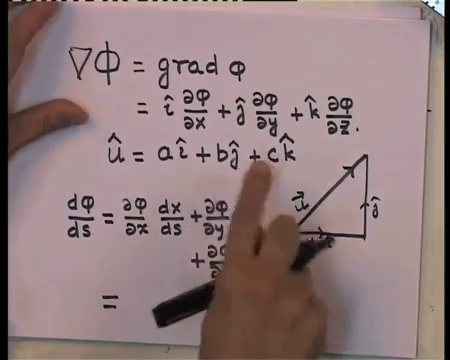 ∇Φ = grad φ
= î ∂φ/∂x + ĵ ∂φ/∂y + k̂ ∂φ/∂z.
û = aî + bĵ + ck̂
dφ/ds = ∂φ/∂x dx/ds + ∂φ/∂y
+
=
ĵ